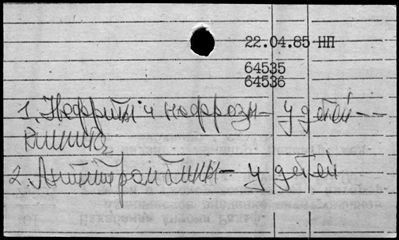 22.04.85 НП
64535
64536
1. Нефриты и нефрозы – у детей –
клиника
2. Антитромбины – у детей